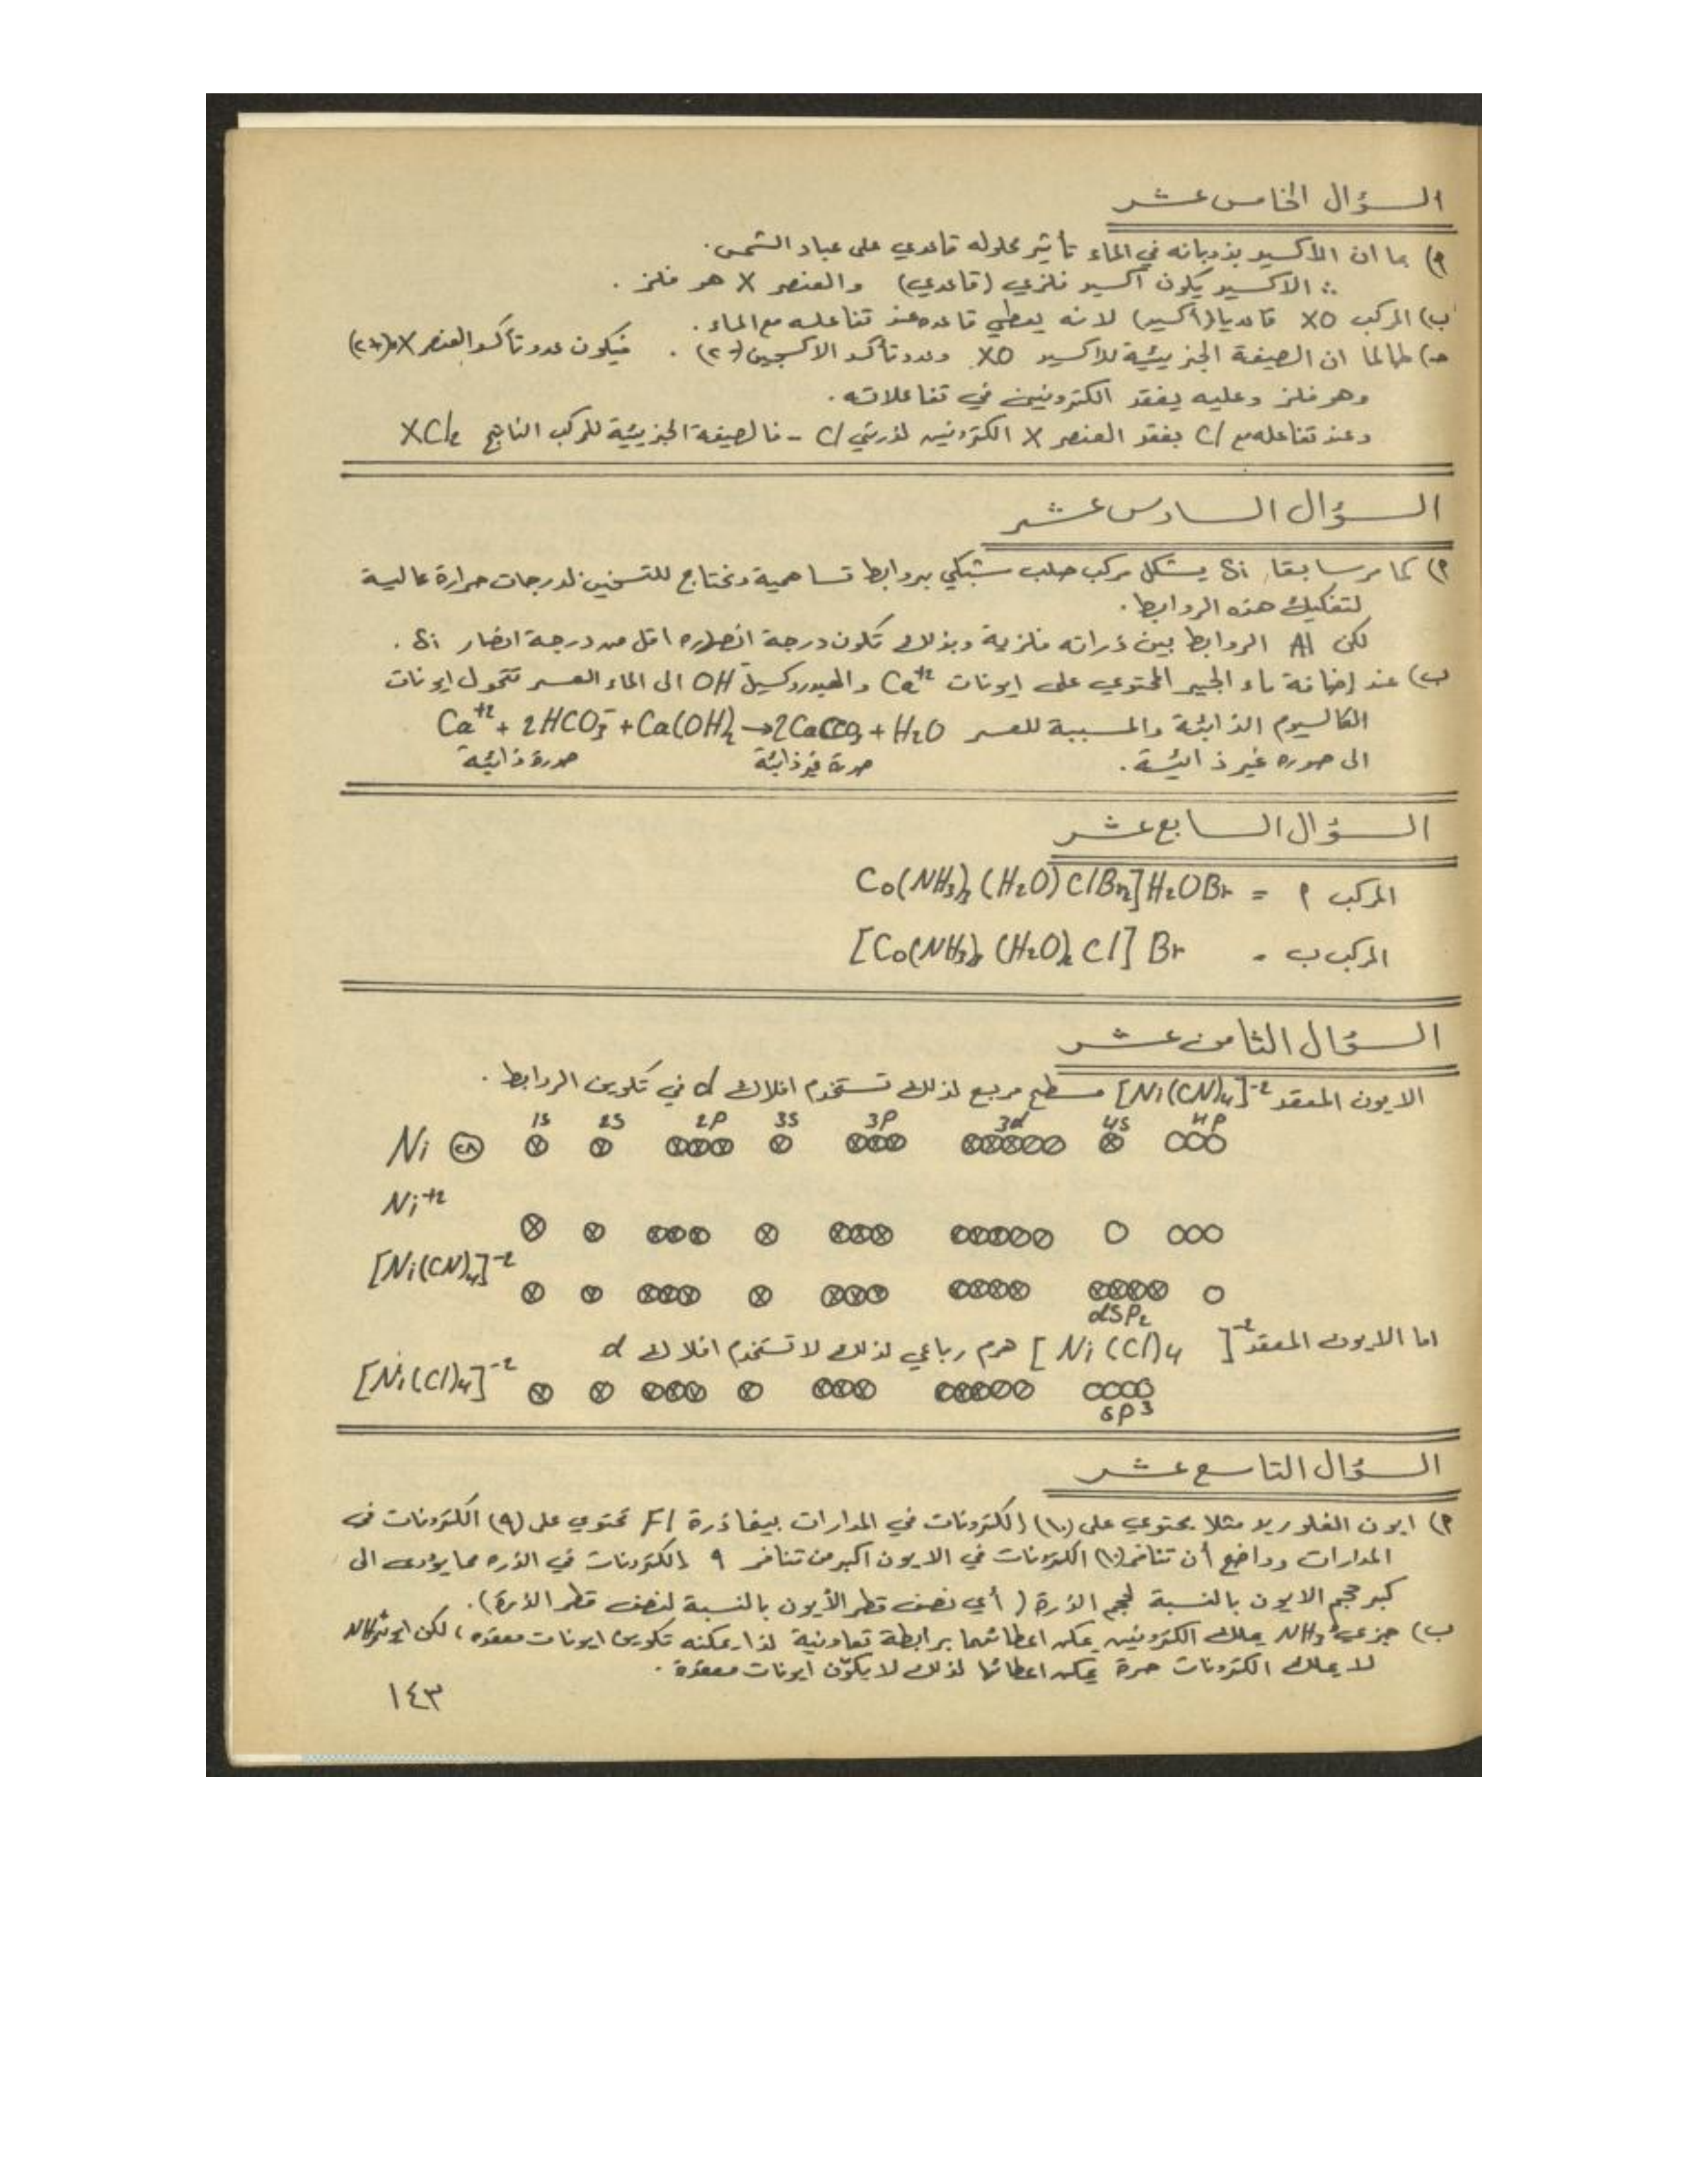 السؤال الخامس عشر
أ) بما ان الأكسيد بذوبانه في الماء تأثير محلوله قاعدي على عباد الشمس.
∴ الاكسيد يكون أكسيد فلزي (قاعدي) والعنصر X هو فلز .
ب) المركب XO قاعديا (أكسيد) لانه يعطي قاعده عند تفاعله مع الماء .
جـ) طالما ان الصيغة الجزيئية للاكسيد XO وعدد تأكسد الاكسجين (-٢) . فيكون عدد تأكسد العنصر X (+٢)
وهو فلز وعليه يفقد الكترونين في تفاعلاته .
وعند تفاعله مع Cl يفقد العنصر X الكترونين لذرتي Cl - فالصيغة الجزيئية للمركب الناتج XCl2
السؤال السادس عشر
أ) كما مر سابقا، Si يشكل مركب صلب شبكي بروابط تساهمية ونحتاج للتسخين لدرجات حرارة عالية
لتفكيك هذه الروابط .
لكن Al الروابط بين ذراته فلزية وبذلك تكون درجة انصهاره اقل من درجة انصهار Si .
ب) عند إضافة ماء الجير المحتوي على ايونات Ca+2 والهيدروكسيل OH- الى الماء العسر تتحول ايونات
الكالسيوم الذائبة والمسببة للعسر Ca+2 + 2HCO3- + Ca(OH)2 → 2CaCO3 + H2O
الى صوره غير ذائبة . صورة غير ذائبة صورة ذائبة
السؤال السابع عشر
المركب أ = Co(NH3)3 (H2O) ClBr2] H2OBr
المركب ب = [Co(NH3)3 (H2O)2 Cl] Br
السؤال الثامن عشر
الايون المعقد [Ni(CN)4]-2 مسطح مربع لذلك تستخدم افلاك d في تكوين الروابط .
1S 2S 2P 3S 3P 3d 4S 4P
Ni
Ni+2
[Ni(CN)4]-2
dSP2
اما الايون المعقد [Ni(Cl)4]-2 هرم رباعي لذلك لا تستخدم افلاك d
[Ni(Cl)4]-2
SP3
السؤال التاسع عشر
أ) ايون الفلوريد مثلا يحتوي على (١٠) الكترونات في المدارات بينما ذرة F تحتوي على (٩) الكترونات في
المدارات وواضح أن تنافر (١٠) الكترونات في الايون اكبر من تنافر ٩ الكترونات في الذره مما يؤدي الى
كبر حجم الايون بالنسبة لحجم الذرة ( أي نصف قطر الأيون بالنسبة لنصف قطر الذرة).
ب) جزيء NH3 يملك الكترونين يمكن اعطائهما برابطة تعاونية لذا يمكنه تكوين ايونات معقده ، لكن ايون
لا يملك الكترونات حرة يمكن اعطائها لذلك لا يكوّن ايونات معقدة .
١٤٣